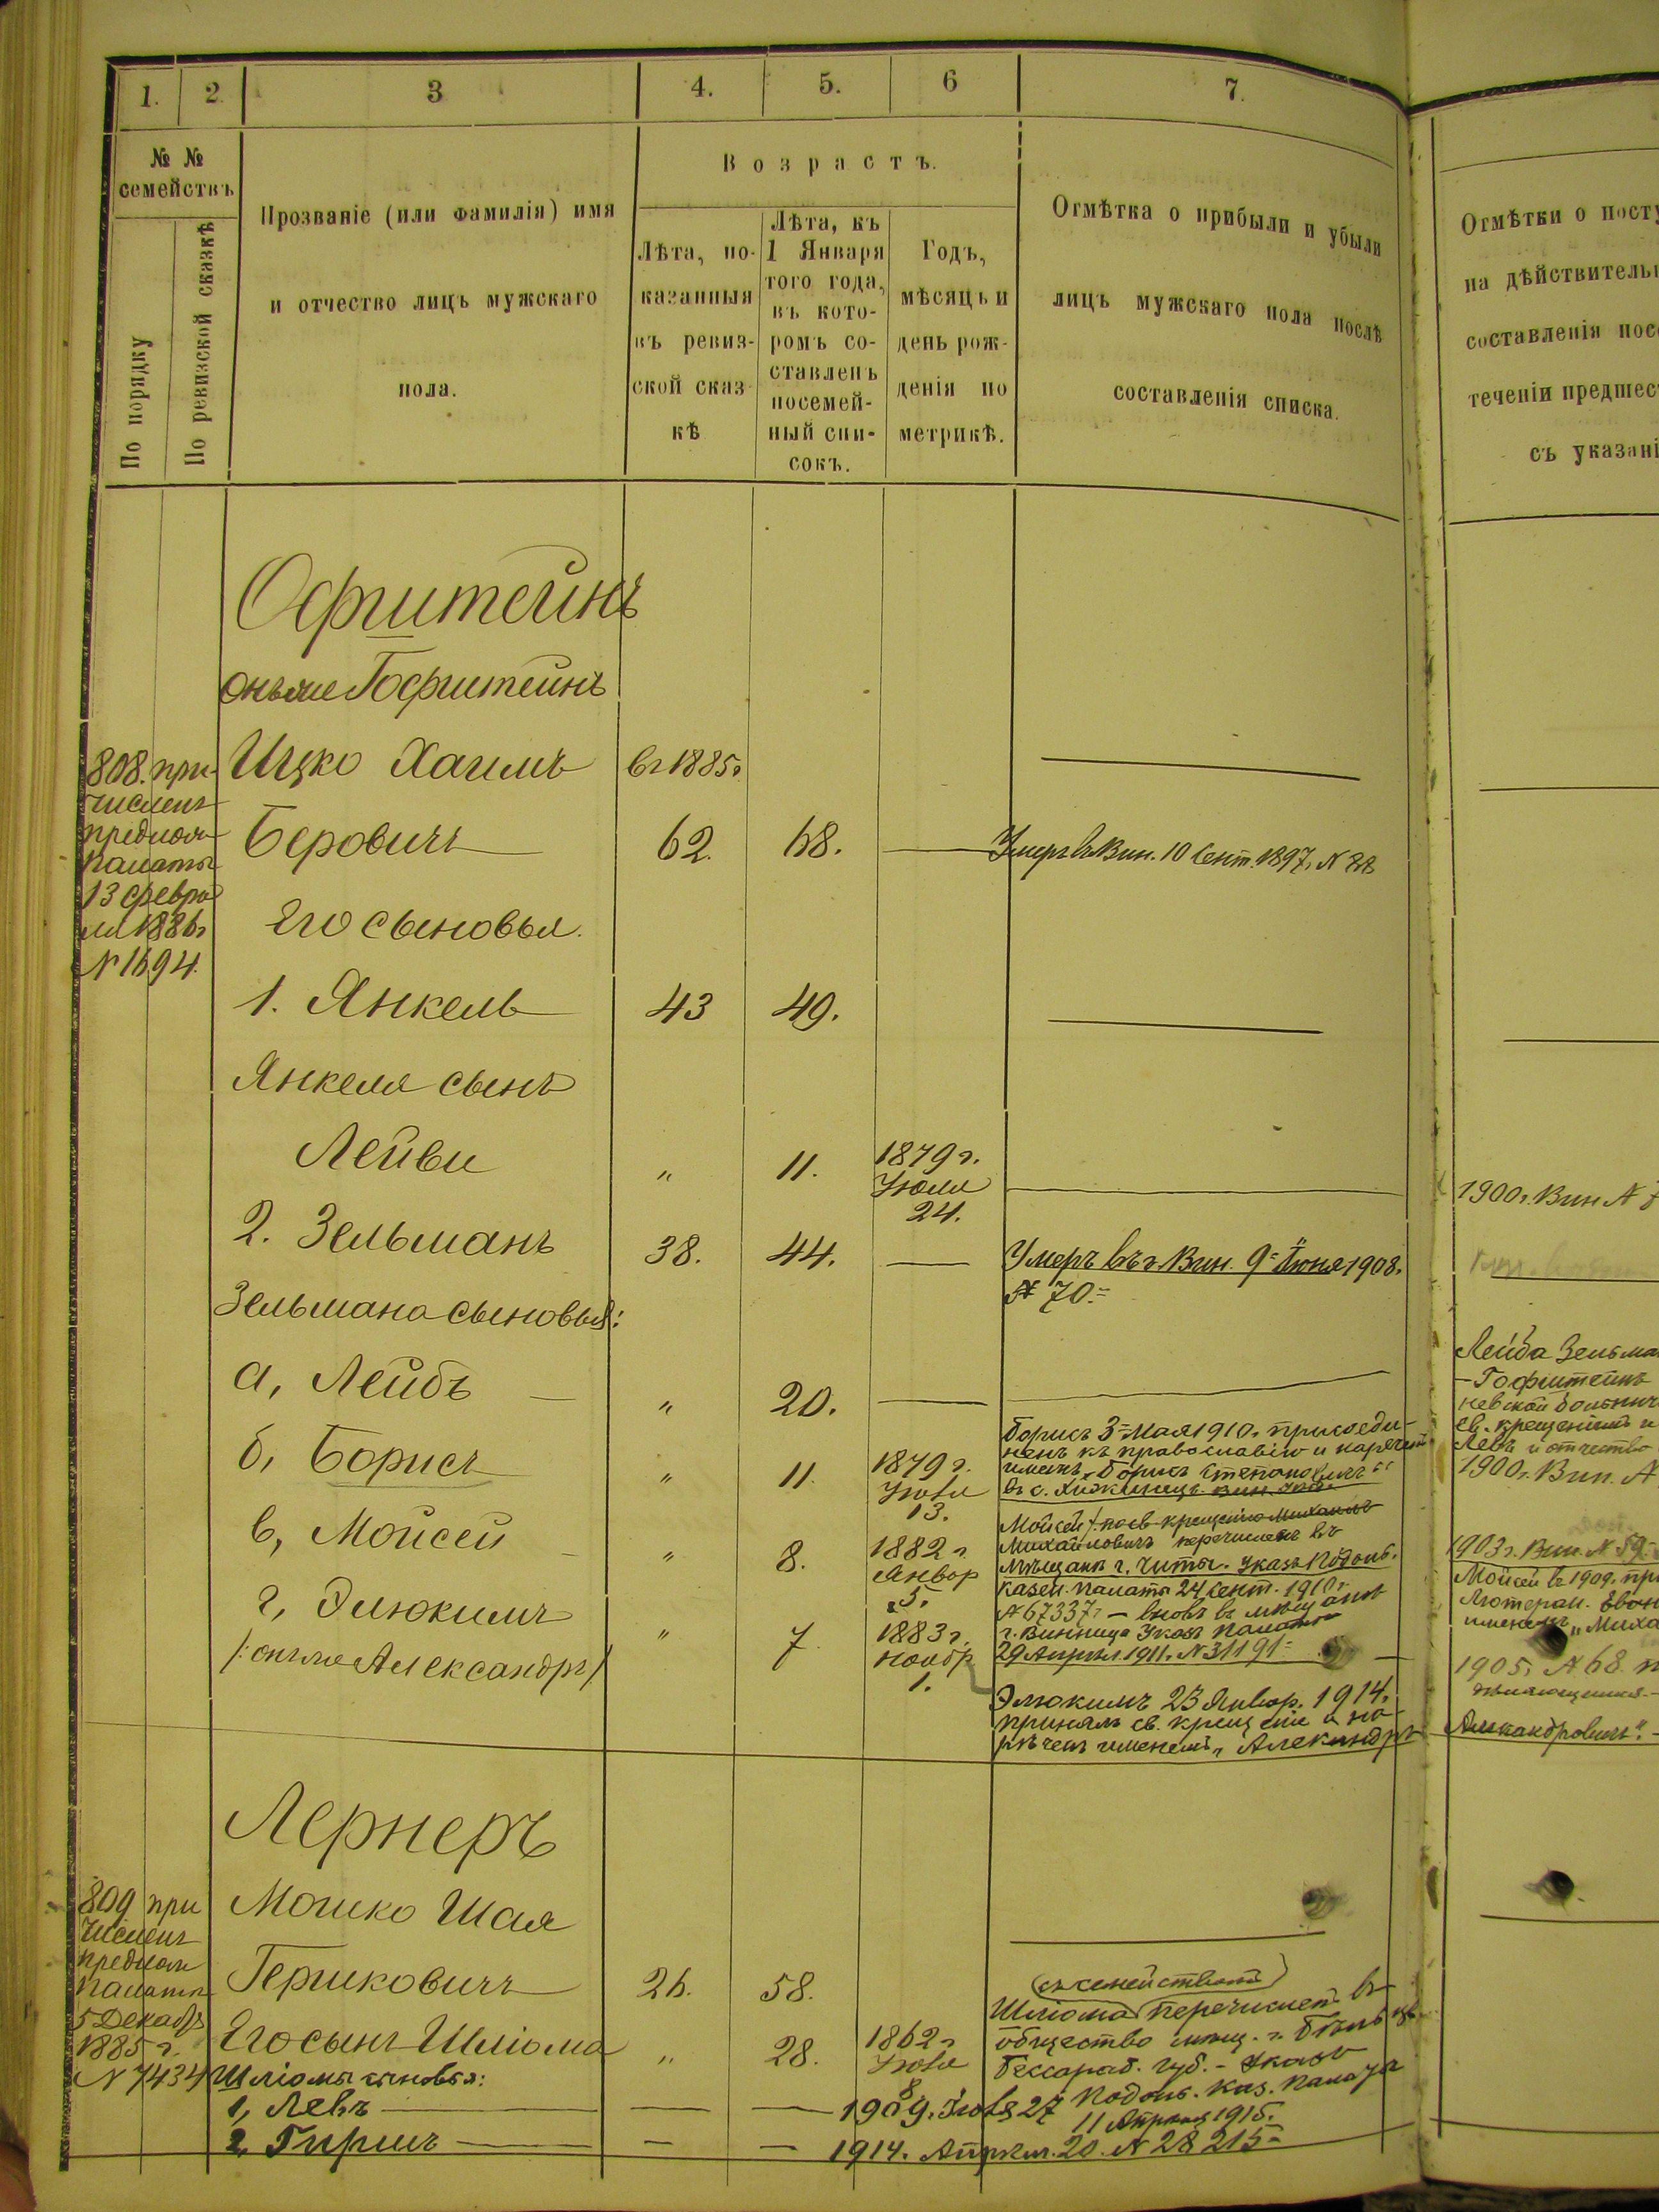 1. 2. 3 4. 5. 6 7.
№ № семействъ
По порядку
По ревизской сказкѣ
Прозваніе (или фамилія) имя
и отчество лицъ мужскаго
пола.
Возрастъ.
Лѣта, по-
казанныя
въ ревиз-
ской сказ-
кѣ
Лѣта, къ
1 Января
того года,
въ кото-
ромъ со-
ставленъ
посемей-
ный спи-
сокъ.
Годъ,
мѣсяцъ и
день рож-
денія по
метрикѣ.
Отмѣтка о прибыли и убыли
лицъ мужскаго пола послѣ
составленія списка.
Отмѣтки о посту
на дѣйствитель
составленія пос
теченіи предшес
съ указані
Офштейнъ
онъ же Гофштейнъ
808. при-
численъ
предпом
Палаты
13 февра
ля 1886 г
N 1694.
Ицко Хаимъ въ 1885 г
Беровичъ 62. 68. — Умеръ въ Вин. 10 Сент. 1897 г. N 88
Его сыновья.
1. Янкель 43 49.
Янкеля сынъ
Лейви „ 11. 1879 г.
Іюля
24.
1900 г. Вин N
2. Зельманъ 38. 44. — Умеръ въ г. Вин. 9 Іюня 1908 г.
N 70.
Зельмана сыновья:
а, Лейбъ — „ 20. —
Лейба Зельма
-Гофштейнъ
невской больнич
св. крещеніемъ и
Левъ и отчество
1900 г. Вин. N
б, Борисъ „ 11. 1879 г.
Іюля
13.
Борисъ 3 Мая 1910 г. присоеди-
ненъ къ православію и нареченъ
именемъ „Борисъ
въ с. Хижинцы
в, Мойсей — „ 8. 1882 г
Январ
5.
Мойсей /: по св. крещенію Михаилъ
Михайловичъ перечисленъ въ
мѣщане г. Читы. Указъ Подол.
Казен. Палаты 24 Сент. 1910 г.
N 67337 г. — вновь въ мѣщане
г. Винница Указъ Палаты
29 Апрѣл. 1911 г. N 31191
1903 г. Вин. N 59
Мойсей въ 1909 г. при
Лютеран.
именемъ „Миха
г, Элюкимъ „ 7. 1883 г.
Ноябр
1.
/: онъ же Александръ /
Элюкимъ 23 Январ. 1914 г.
принялъ св. крещеніе и на-
рѣченъ именемъ „Александръ
1905 г. N 68
Александровичъ".
Лернеръ
809 при
численъ
предпом
Палаты
5 Декабр
1885 г.
N 7434
Мошко Шая
Гершковичъ 26. 58.
Его сынъ Шліома „ 28. 1862 г
Іюля
8
(съ семействомъ)
Шліома перечисленъ въ
общество мѣщ. г. Бѣльцы
Бессараб. губ. - Указъ
Подоль. Каз. Палаты
11 Апрѣля 1915 г.
N 28215
Шліомы сыновья:
1, Левъ — — — 1909 г. Іюля 27
2, Гиршъ — — — 1914 г. Апрѣл. 20.